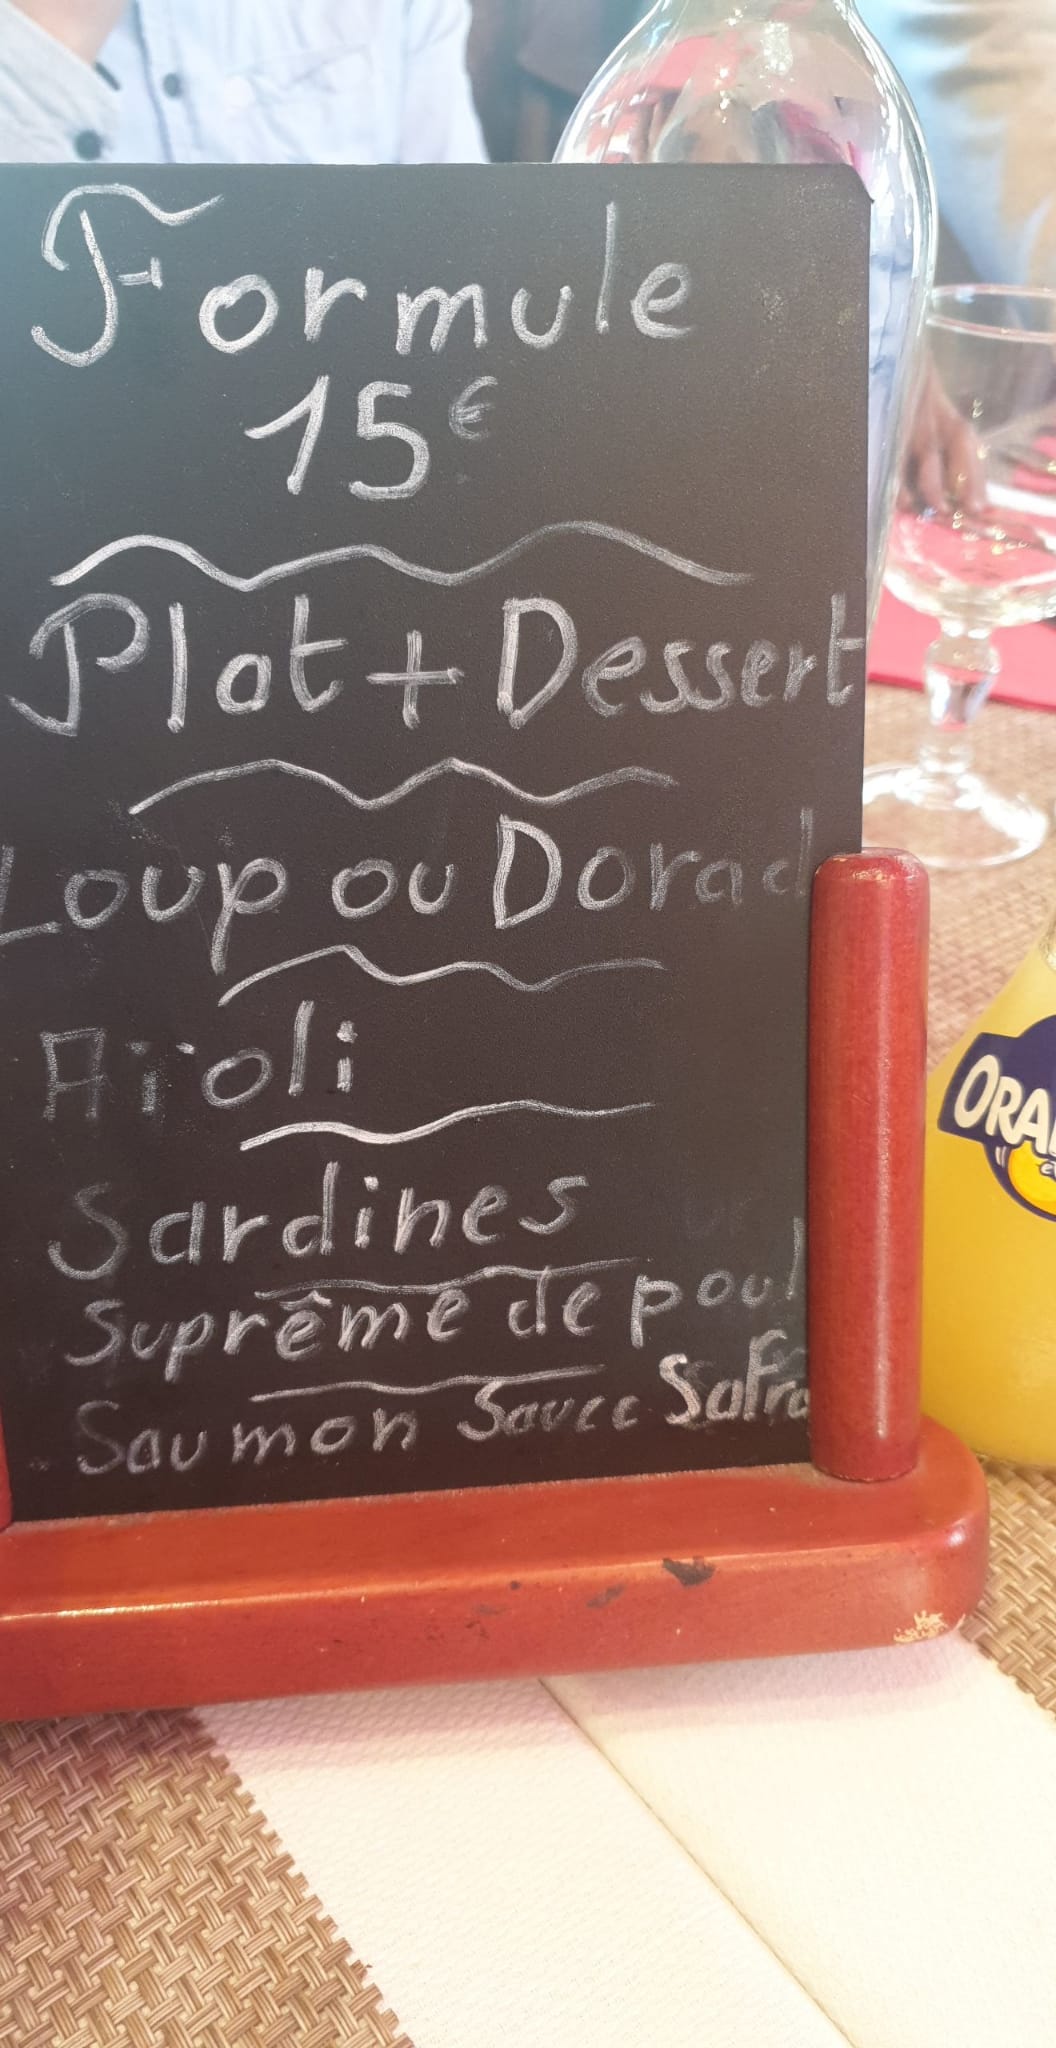 Formule
15€
Plat + Dessert
Loup ou Dorad
Aïoli
Sardines
Suprême de poul
Saumon Sauce Safra
ORA